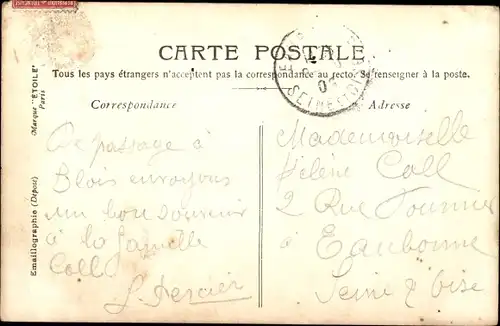 CARTE POSTALE
Tous les pays étrangers n'acceptent pas la correspondance au recto. Se renseigner à la poste.
Correspondance
Adresse
De passage à
Blois envoyons
un bon souvenir
à la famille
Coll
Mademoiselle
Hélène Coll
2 Rue
à Eaubonne
Seine & Oise
Emaillographie (Déposé) Marque "ÉTOILE"
Paris
SEINE-ET-OISE